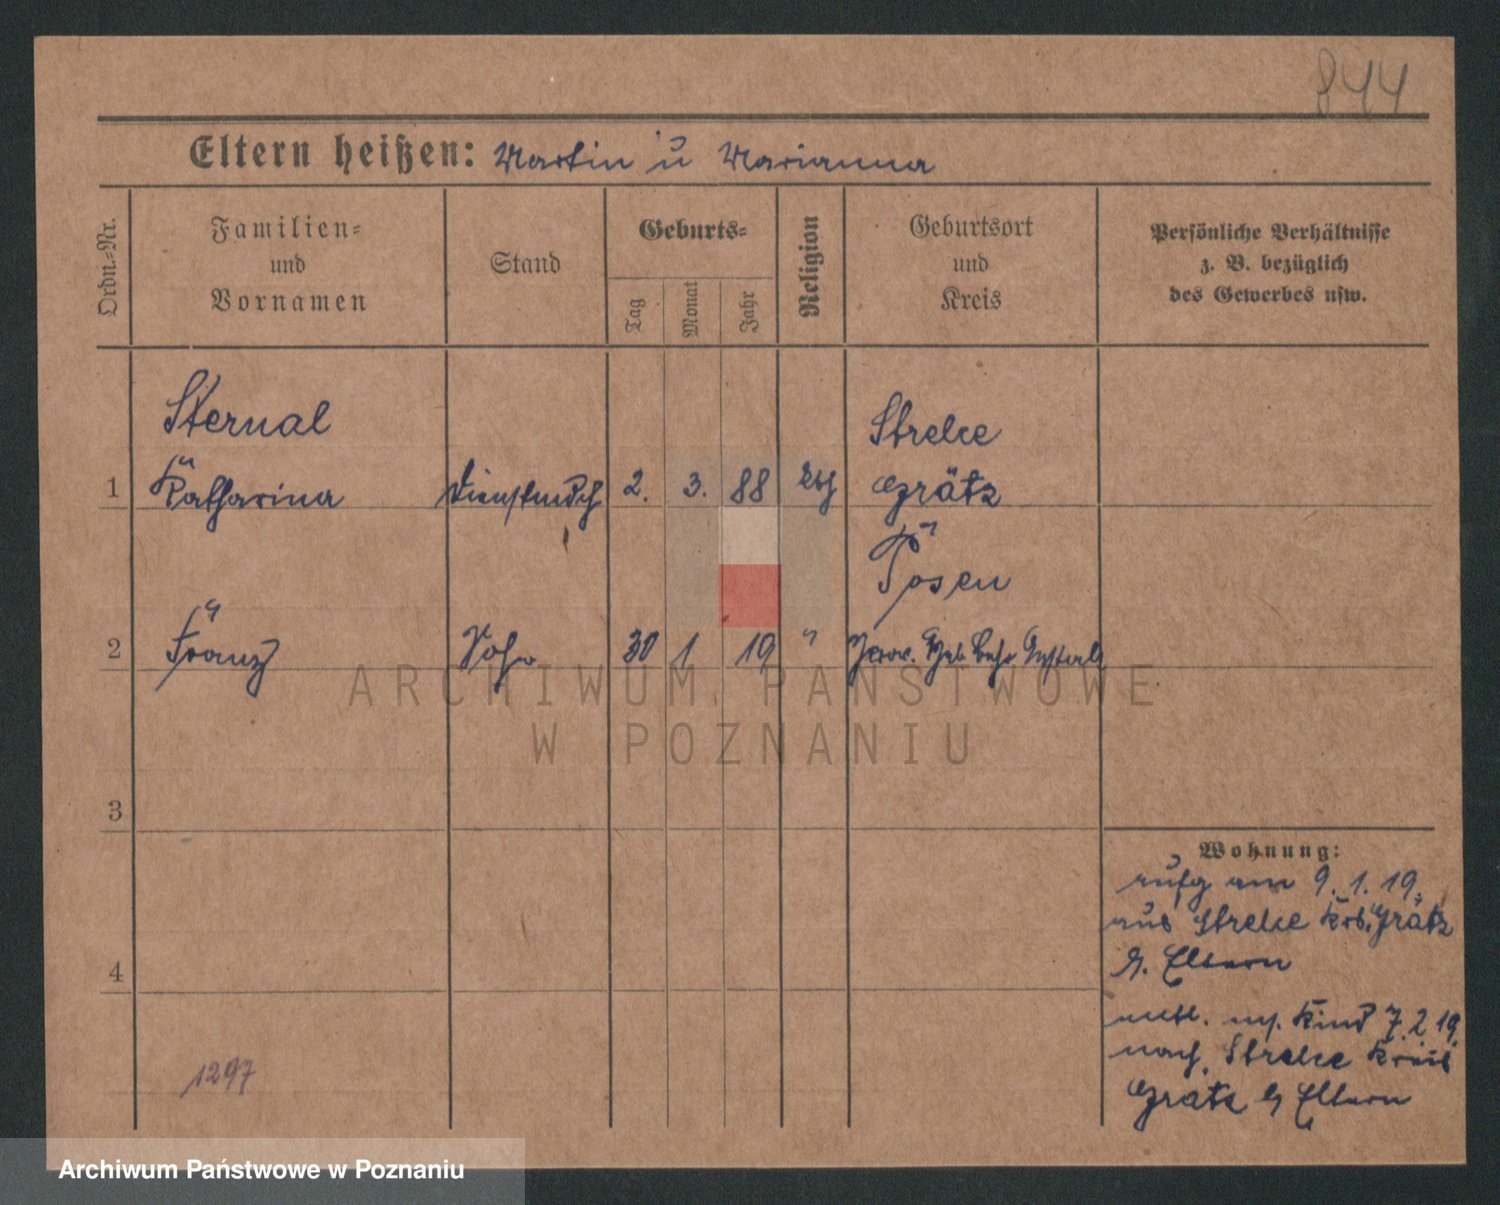 844
Eltern heißen: Martin u Marianna
Ordn.-Nr.
Familien-
und
Vornamen
Stand
Geburts-
Tag
Monat
Jahr
Religion
Geburtsort
und
Kreis
Persönliche Verhältnisse
z. B. bezüglich
des Gewerbes usw.
Sternal Strelce
1 Katharina Dienstmdch 2. 3. 88 kth Grätz
Posen
2 Franz Sohn 30 1 19 " Prov. Heb.
3
4
Wohnung:
aufg am 9. 1. 19.
aus Strelce Krs. Grätz
b. Eltern
m. Kind 7. 2. 19.
nach Strelce Kreis
Grätz b Eltern
1297
ARCHIWUM PAŃSTWOWE
W POZNANIU
Archiwum Państwowe w Poznaniu